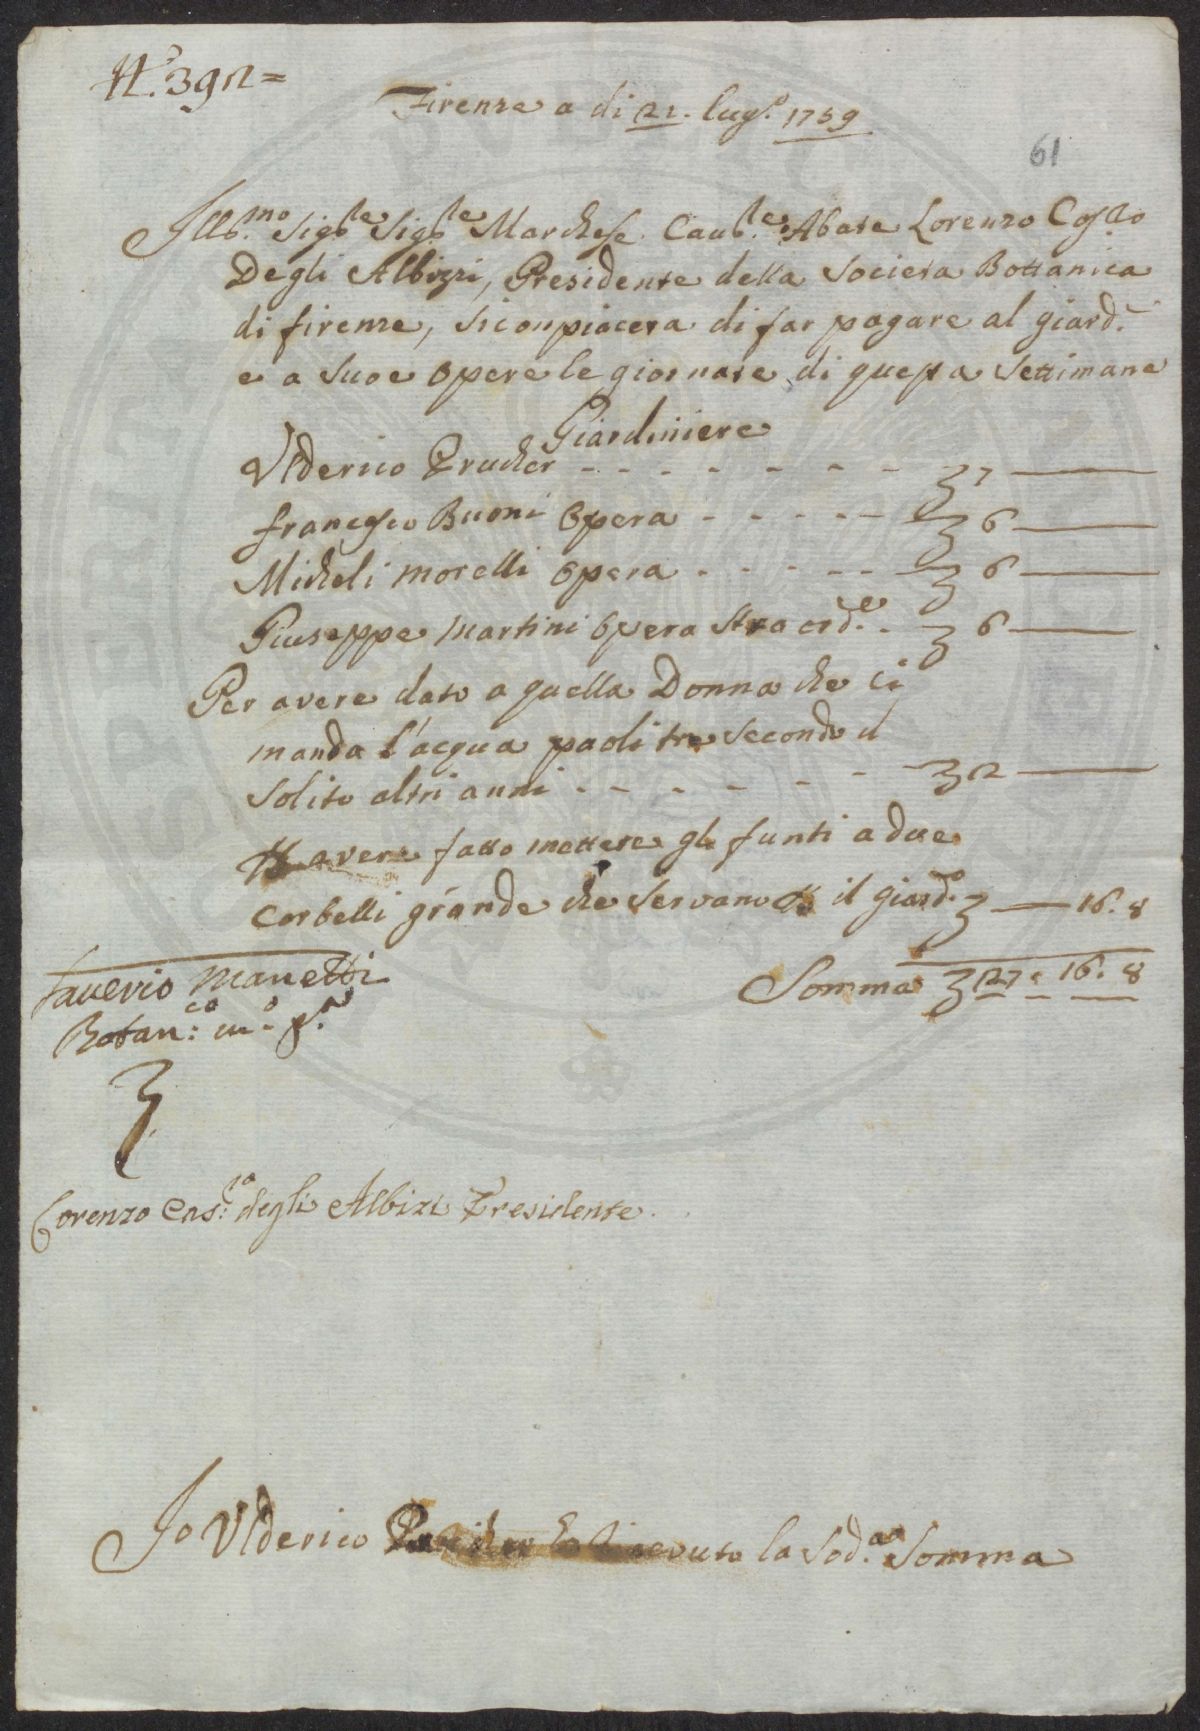 N.º 392=
Firenze a di 21. lug.º 1759
61
Ill.mo Sig.re Sig.re Marchese Cav.re Abate Lorenzo
Degli Albizzi, Presidente della Societa Bottanica
di firenze, si conpiacera di far pagare al giard.e
e a sue Opere le giornate di questa Settimane
Giardiniere
Ulderico Prucher - - - - - - - 7
francesco Buoni Opera - - - - - 6
Micheli morelli Opera - - - - - 6
Giuseppe Martini Opera straord.e - 6
Per avere dato a quella Donna che ci
manda l'acqua paoli tre secondo il
solito altri anni - - - - - - 2
P avere fatto mettere gli funti a due
Corbelli grande che servano P il giard.º 16. 8
Somma 27. 16. 8
Saverio Manetti
Botan.co m.o p.a
Lorenzo Cas.ra degli Albizi Presidente.
Io Ulderico Prucher ho ricevuto la Sod.aa Somma